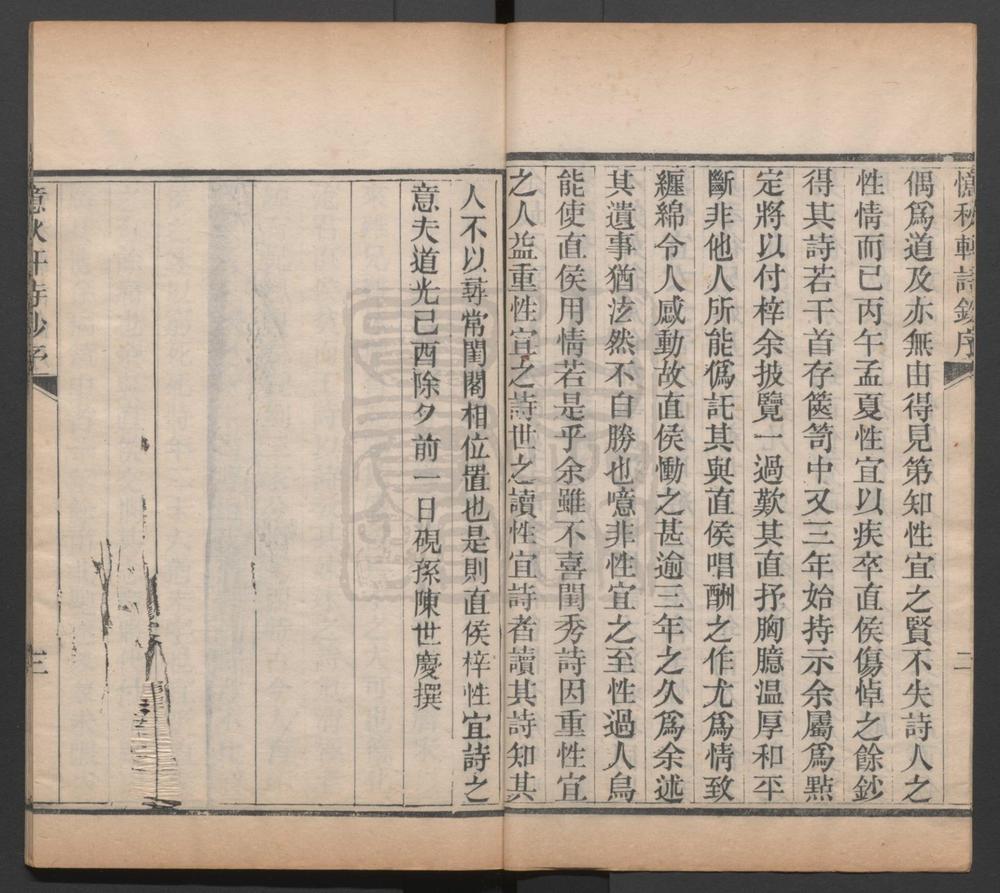 憶秋軒詩鈔序
二
偶爲道及亦無由得見第知性宜之賢不失詩人之
性情而已丙午孟夏性宜以疾卒直侯傷悼之餘鈔
得其詩若干首存篋笥中又三年始持示余屬爲㸃
定將以付梓余披覽一過歎其直抒胸臆温厚和平
斷非他人所能僞託其與直侯唱酬之作尤爲情致
纏綿令人感動故直侯慟之甚逾三年之久爲余述
其遺事猶泫然不自勝也噫非性宜之至性過人烏
能使直侯用情若是乎余雖不喜閨秀詩因重性宜
之人益重性宜之詩世之讀性宜詩者讀其詩知其
人不以尋常閨閣相位置也是則直侯梓性宜詩之
意夫道光己酉除夕前一日硯孫陳世慶撰
意秋軒詩鈔序
三